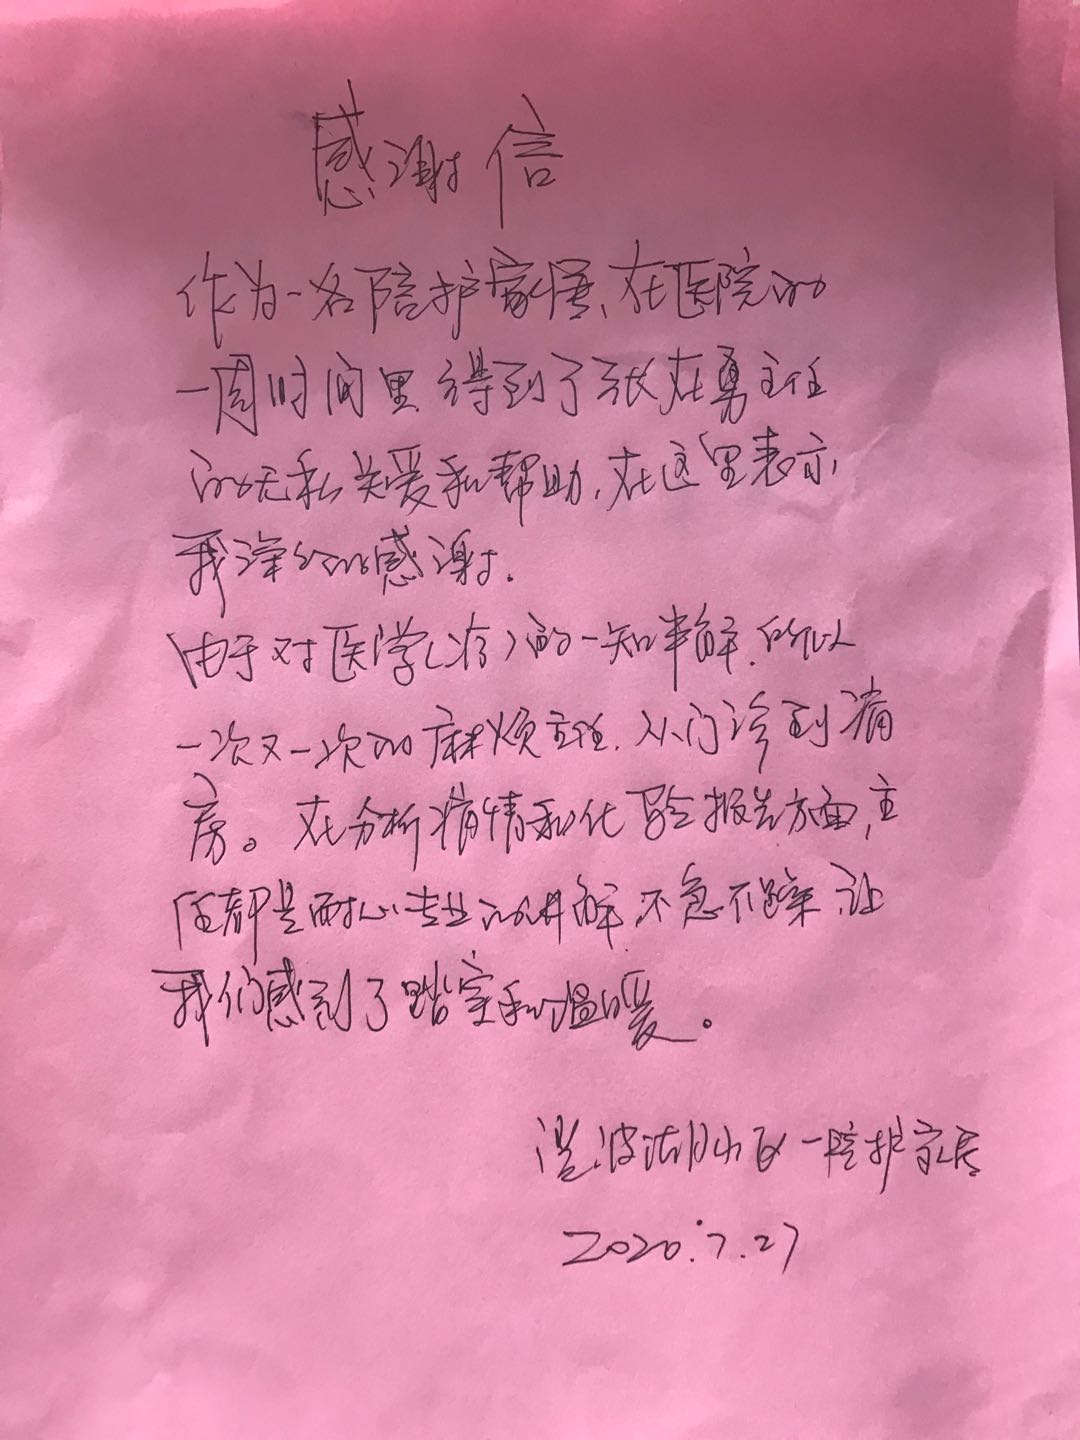 感谢信
作为一名陪护家属，在医院的
一周时间里得到了张在勇主任
的无私关爱和帮助，在这里表示
我深深的感谢．
由于对医学（疗）的一知半解．所以
一次又一次的麻烦主任．从门诊到病
房。在分析病情和化验报告方面，主
任都是耐心专业的讲解．不急不躁．让
我们感到了踏实和温暖。
波湖小区一陪护家居
2020.7.27